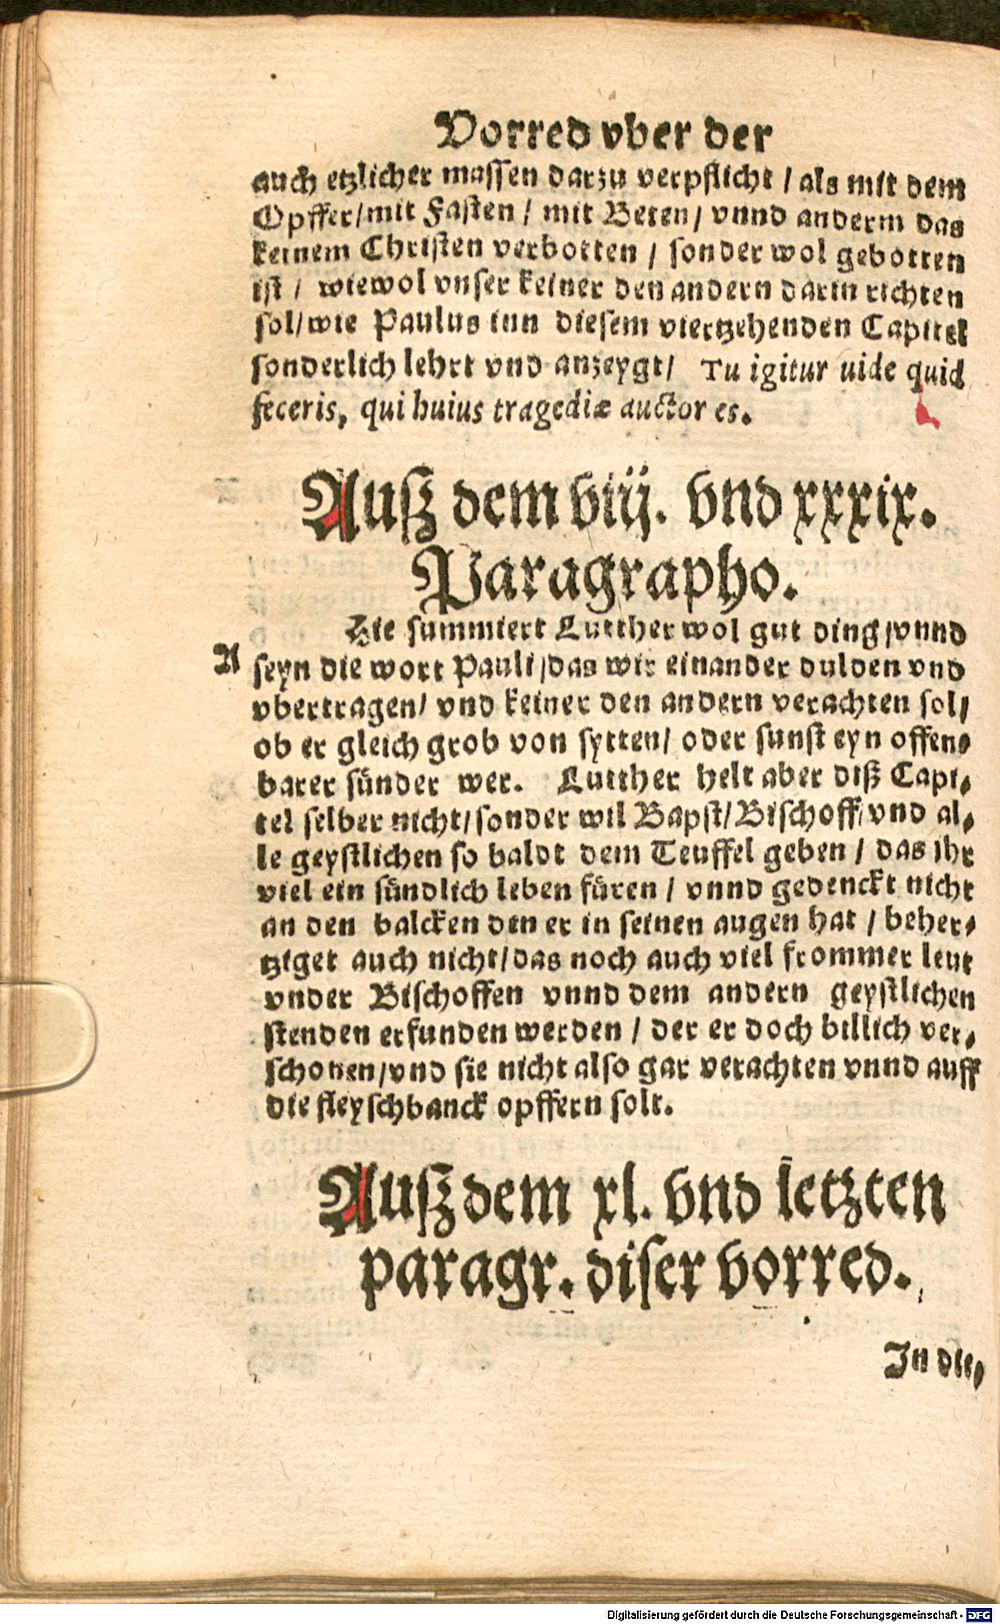 Vorred vber der
auch etzlicher massen darzu verpflicht / als mit dem
Opffer/mit Fasten / mit Beten / vnnd anderm das
keinem Christen verbotten / sonder wol gebotten
ist / wiewol vnser keiner den andern darin richten
sol/wie Paulus inn diesem viertzehenden Capitel
sonderlich lehrt vnd anzeygt / Tu igitur uide quid
feceris, qui huius tragediæ auctor es.
Auß dem viij. vnd xxxix.
Paragrapho.
Hie summiert Lutther wol gut ding/vnnd
A
seyn die wort Pauli/das wir einander dulden vnd
vbertragen/ vnd keiner den andern verachten sol/
ob er gleich grob von sytten/ oder sunst eyn offen⸗
barer sünder wer. Lutther helt aber diß Capi⸗
tel selber nicht/sonder wil Bapst/Bischoff/vnd al⸗
le geystlichen so baldt dem Teuffel geben / das ihr
viel ein sündlich leben füren / vnnd gedenckt nicht
an den balcken den er in seinen augen hat / beher⸗
tziget auch nicht/das noch auch viel frommer leut
vnder Bischoffen vnnd dem andern geystlichen
stenden erfunden werden / der er doch billich ver⸗
schonen/vnd sie nicht also gar verachten vnnd auff
die fleyschbanck opffern solt.
Auß dem xl. vnd letzten
paragr. diser vorred.
In die⸗
Digitalisierung gefördert durch die Deutsche Forschungsgemeinschaft - DFG